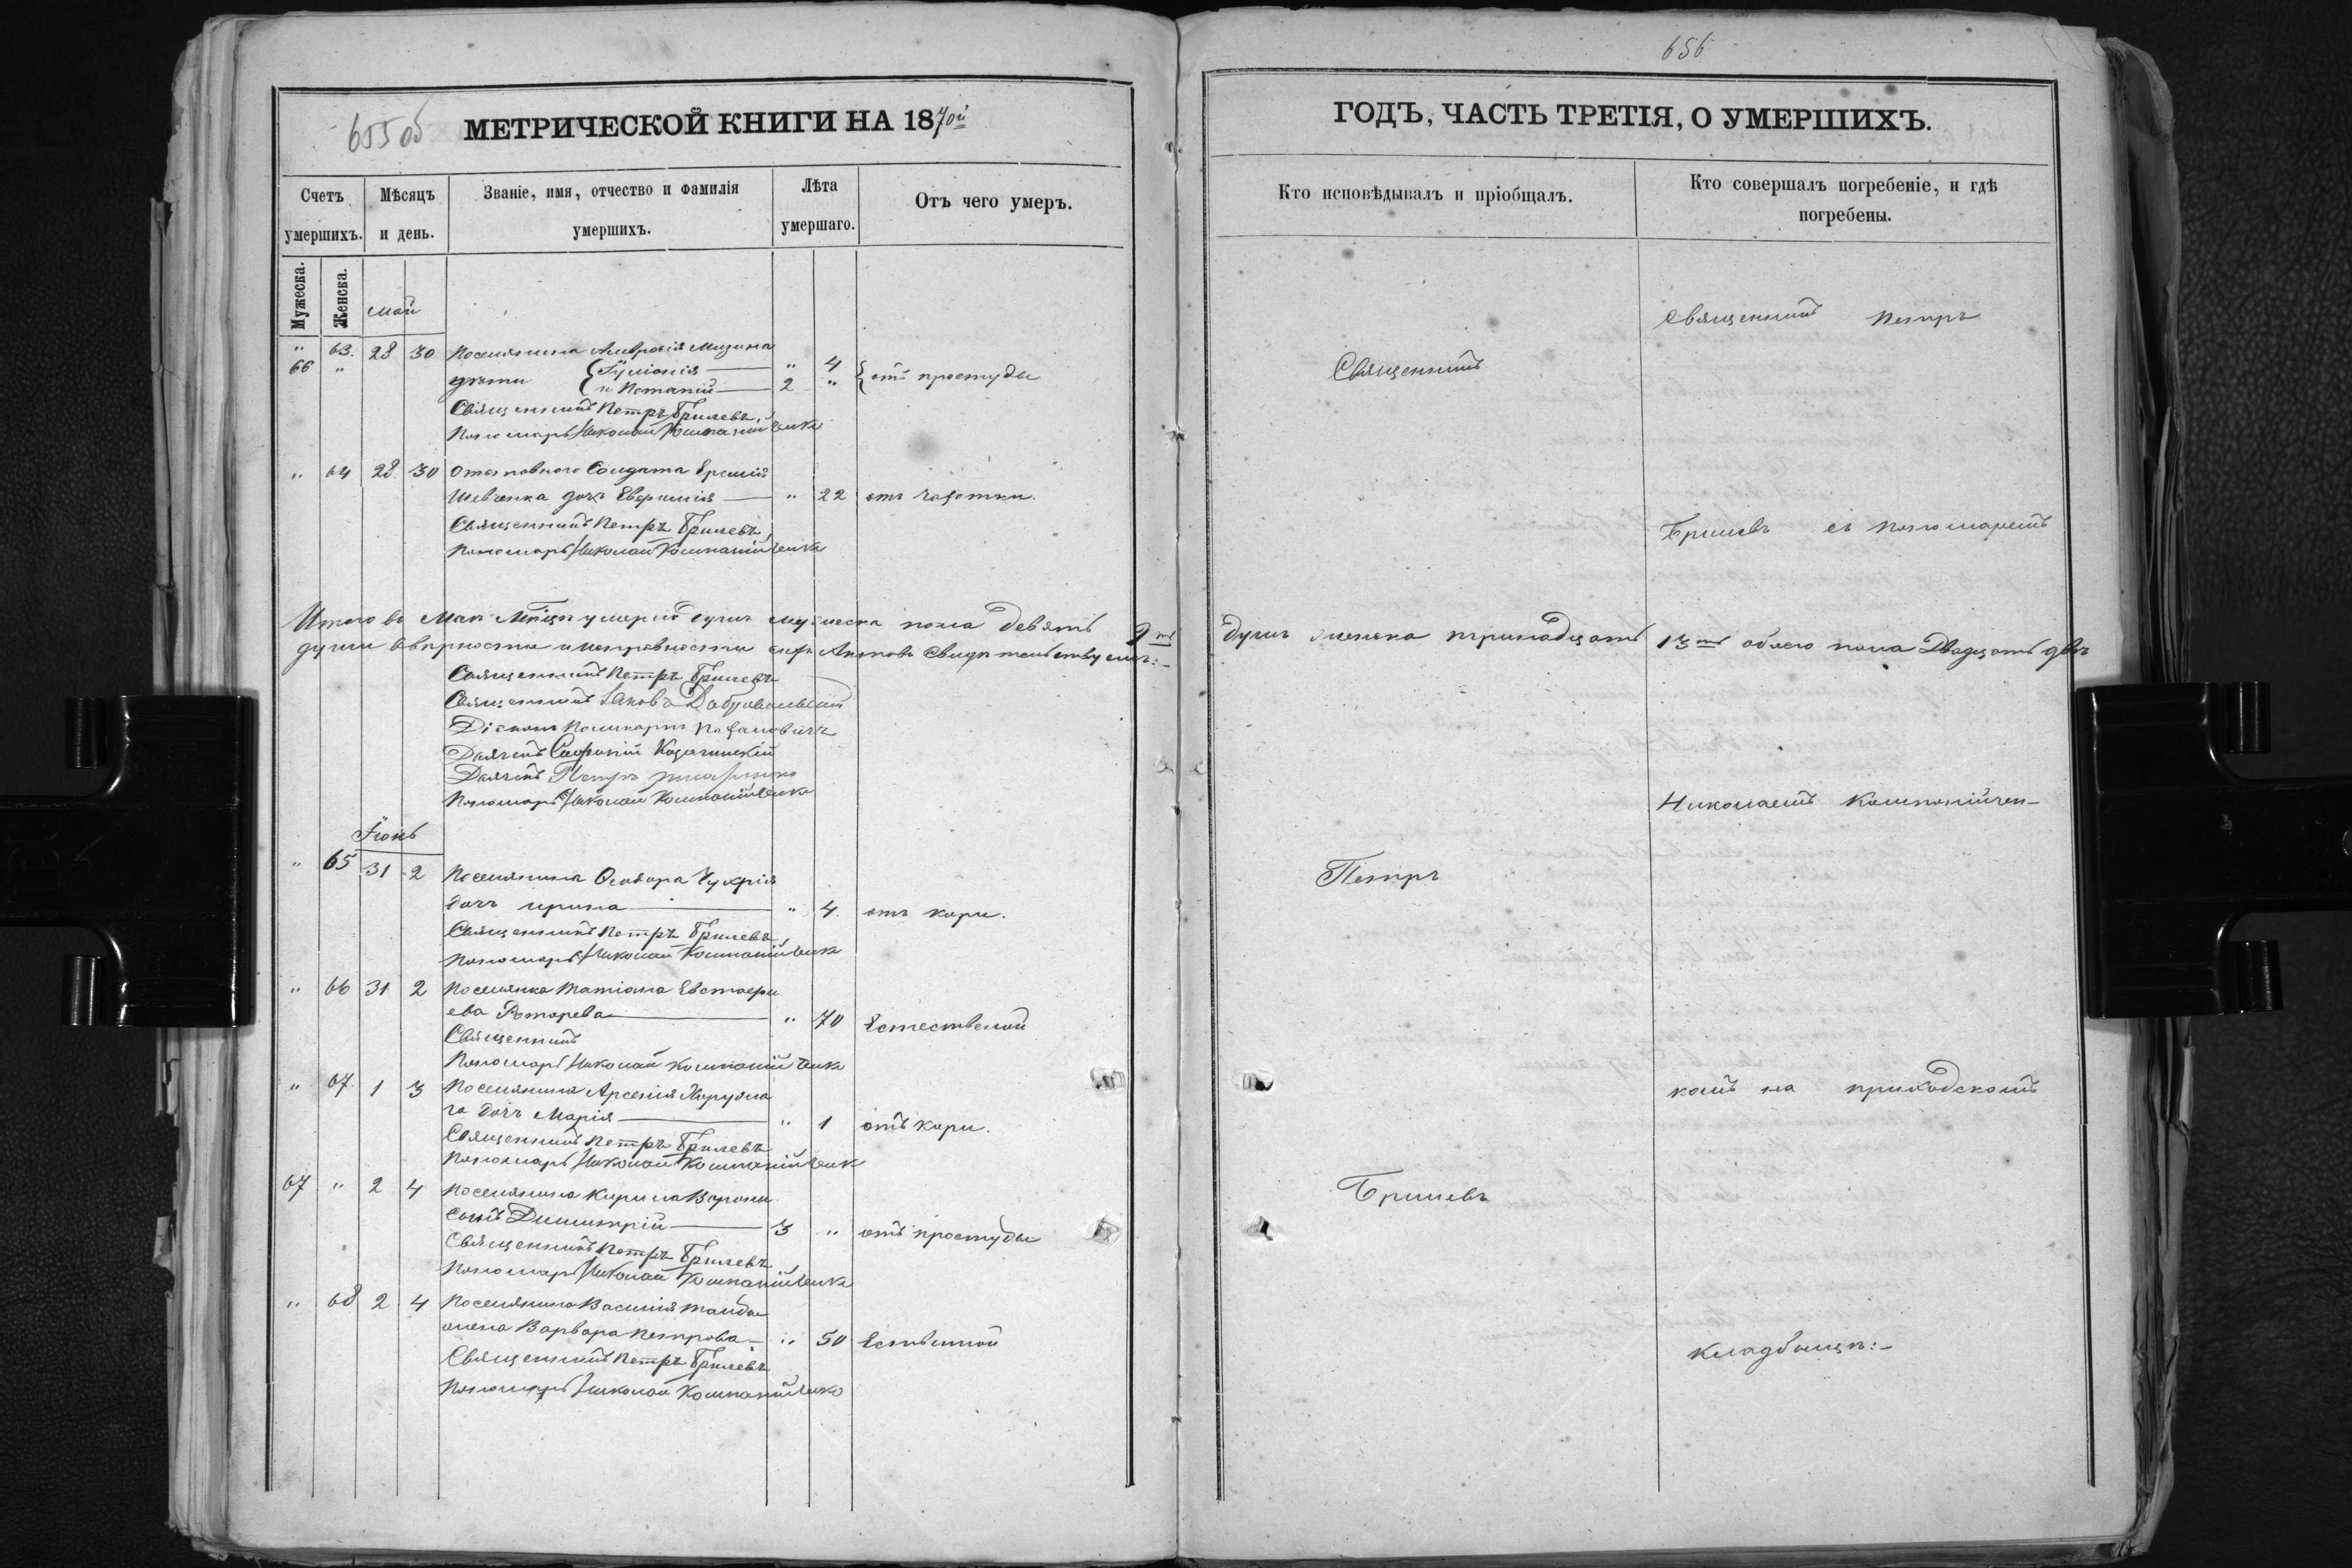 655 об
МЕТРИЧЕСКОЙ КНИГИ НА 1870й
Счетъ умершихъ.
Мѣсяцъ и день.
Званіе, имя, отчество и фамилія умершихъ.
Лѣта умершаго.
Отъ чего умеръ.
Мужеска.
Женска.
Май
" 63. 28 30 Поселянина Амвросія
66 " дѣти { Іуліанія — " 4 } отъ простуды
и Потапій — 2 "
Священникъ Петръ Грилевъ
Пономарь Николай Компанійченко
" 64 28 30 Солдата
Шевченка дочь — " 22 отъ чахотки.
Священникъ Петръ Грилевъ
Пономарь Николай Компанійченко
Итого въ Маѣ Мѣсяцѣ умершихъ мужеска пола девять 9ть
души Актовъ свидѣтельствуемъ:-
Священникъ Петръ Грилевъ
Священникъ Іаковъ
Діаконъ
Дьячекъ Софроній
Дьячекъ Петръ
Пономарь Николай Компанійченко
Іюнь
" 65 31 2 Поселянина Ѳеодора
дочь Ирина — " 4 отъ кори.
Священникъ Петръ Грилевъ
Пономарь Николай Компанійченко
" 66 31 2 Поселянка Татіана Евстафи
ева Ротарева — " 70 Естественной
Священникъ
Пономарь Николай Компанійченко
" 67 1 3 Поселянина Арсенія
дочь Марія — " 1 отъ кори.
Священникъ Петръ Грилевъ
Пономарь Николай Компанійченко
67 " 2 4 Поселянина Кирила Вороны
сынъ Димитрій — 3 " отъ простуды
Священникъ Петръ Грилевъ
Пономарь Николай Компанійченко
" 68 2 4 Поселянина Василія
жена Варвара Петрова — " 50
Священникъ Петръ Грилевъ
Пономарь Николай Компанійченко
656
ГОДЪ, ЧАСТЬ ТРЕТІЯ, О УМЕРШИХЪ.
Кто исповѣдывалъ и пріобщалъ.
Кто совершалъ погребеніе, и гдѣ погребены.
Священникъ Петръ
Священникъ
Грилевъ съ пономаремъ
душъ женска тринадцать 13ть обоего пола Двадцать двѣ
Николаемъ Компанійчен-
Петръ
комъ на приходскомъ
Грилевъ
кладбищѣ:-